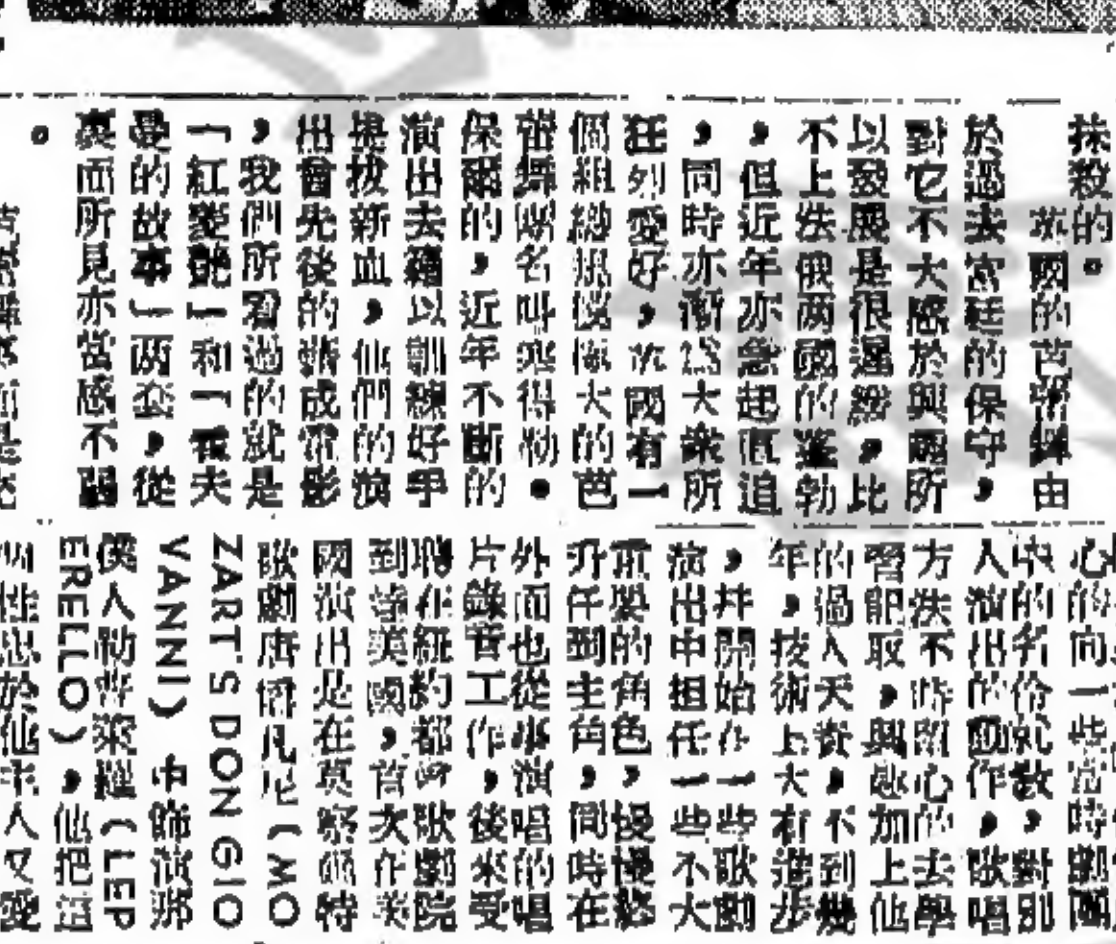 抹殺的。
英國的芭蕾舞由
於過去宮廷的保守，
對它不大感於興趣所
以發展是很遲緩，比
不上法俄两國的蓬勃
，但近年亦急起直追
，同時亦漸為大衆所
狂列愛好，英國有一
個組織規模龐大的芭
蕾舞團名叫寒得勒．
保爾的，近年不斷的
演出去藉以訓練好手
提拔新血，他們的演
出會先後的攝成電影
，我們所看過的就是
「紅菱艶」和「霍夫
曼的故事」两套，從
裏而所見亦當感不弱
。
心的向一些當時劇團
中的名伶就教，對別
人演出的動作，歌唱
方法不時留心的去學
習記取，興趣加上他
的過人天資，不到幾
年，技術上大有進步
，并開始在一些歌劇
演出中担任一些不大
重要的角色，慢慢終
升任到主角，同時在
外面也從事演唱的唱
片錄音工作，後來受
聘在紐約都會歌劇院
到達美國，首次在美
國演出是在莫察爾特
歌劇唐儒凡尼（MO
ZART'S DON GIO
VANNI）中飾演那
僕人勒普萊羅（LEP
ERELLO），他把這
個性忠於他主人又愛